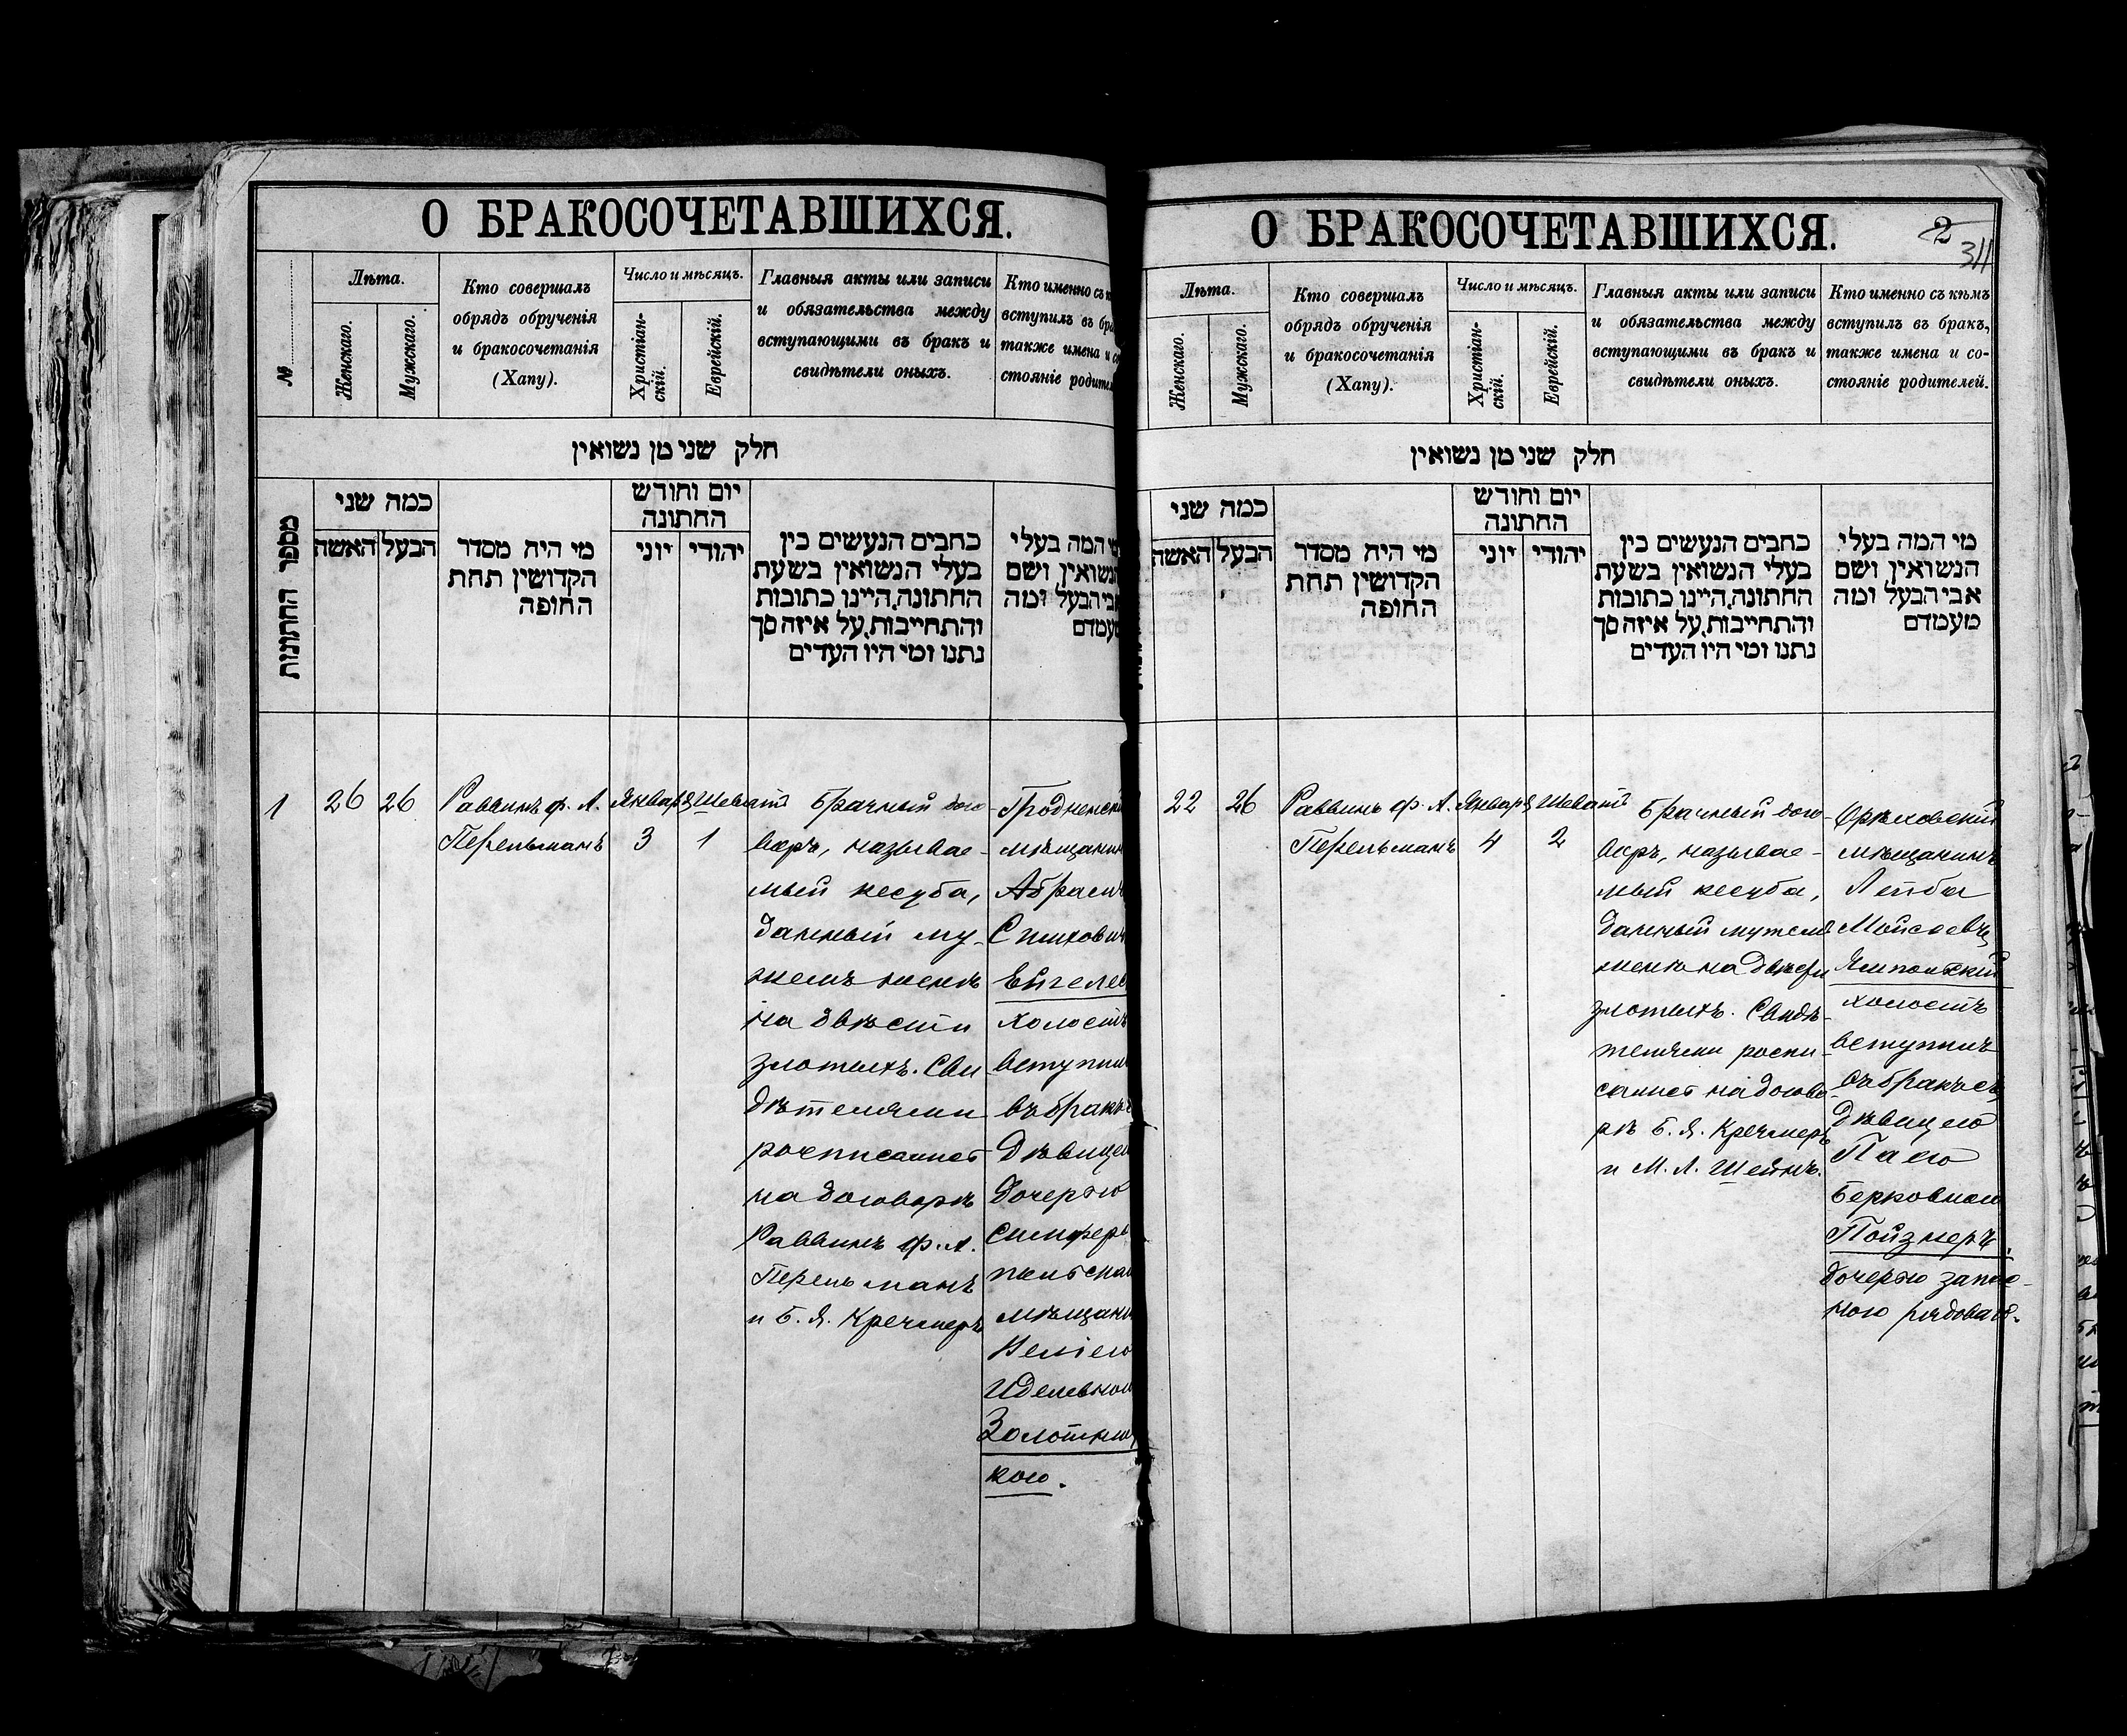 О БРАКОСОЧЕТАВШИХСЯ.
№
Лѣта.
Женскаго.
Мужскаго.
Кто совершалъ
обрядъ обрученія
и бракосочетанія
(Хапу).
Число и мѣсяцъ.
Христіан-
скій.
Еврейскій.
Главныя акты или записи
и обязательства между
вступающими въ бракъ и
свидѣтели оныхъ.
Кто именно съ
вступилъ въ
также имена и
стояніе
חלק שני מן נשואין
מספר החתונות
כמה שני
האשה
הבעל
מי היה מסדר
הקדושין תחת
החופה
יום וחודש
החתונה
יוני
יהודי
כתבים הנעשים בין
בעלי הנשואין בשעת
החתונה, היינו כתובות
והתחייבות, על איזה סך
נתנו ומי היו העדים
מי המה בעלי
הנשואין ושם
אבי הבעל ומה
מעמדם
1
26
26
Раввинъ ф. А.
Перельманъ
Января
3
Шеватъ
1
Брачный дого-
воръ, называе-
мый кесуба,
данный му-
жемъ женѣ
на двѣсти
злотыхъ. Сви-
дѣтелями
на договорѣ
Раввинъ Ф. А.
Перельманъ
и Б. Я. Кречмеръ
Гродненскій
мѣщанинъ
Абрамъ
холостъ
вступилъ
въ бракъ
дѣвицею
дочерью
симферо
польскаго
мѣщанина
Иделевною
Золотниц
кою.
О БРАКОСОЧЕТАВШИХСЯ.
2
311
Лѣта.
Женскаго.
Мужскаго.
Кто совершалъ
обрядъ обрученія
и бракосочетанія
(Хапу).
Число и мѣсяцъ.
Христіан-
скій.
Еврейскій.
Главныя акты или записи
и обязательства между
вступающими въ бракъ и
свидѣтели оныхъ.
Кто именно съ кѣмъ
вступилъ въ бракъ,
также имена и со-
стояніе родителей.
חלק שני מן נשואין
כמה שני
האשה
הבעל
מי היה מסדר
הקדושין תחת
החופה
יום וחודש
החתונה
יוני
יהודי
כתבים הנעשים בין
בעלי הנשואין בשעת
החתונה, היינו כתובות
והתחייבות, על איזה סך
נתנו ומי היו העדים
מי המה בעלי
הנשואין ושם
אבי הבעל ומה
מעמדם
22
26
Раввинъ ф. А.
Перельманъ
Января
4
Шеватъ
2
Брачный дого-
воръ, называе-
мый кесуба,
данный мужемъ
женѣ на двѣсти
злотыхъ. Свидѣ-
телями роспи-
на догово-
рѣ Б. Я. Кречмеръ
и М. Л. Шейнъ.
Орѣховскій
мѣщанинъ
Лейба
Мойсеевъ
Ямпольскій
холостъ
вступилъ
въ бракъ съ
дѣвицею
Пасею
Берковною
Пойзнеръ,
дочерью запас-
ного рядоваго.